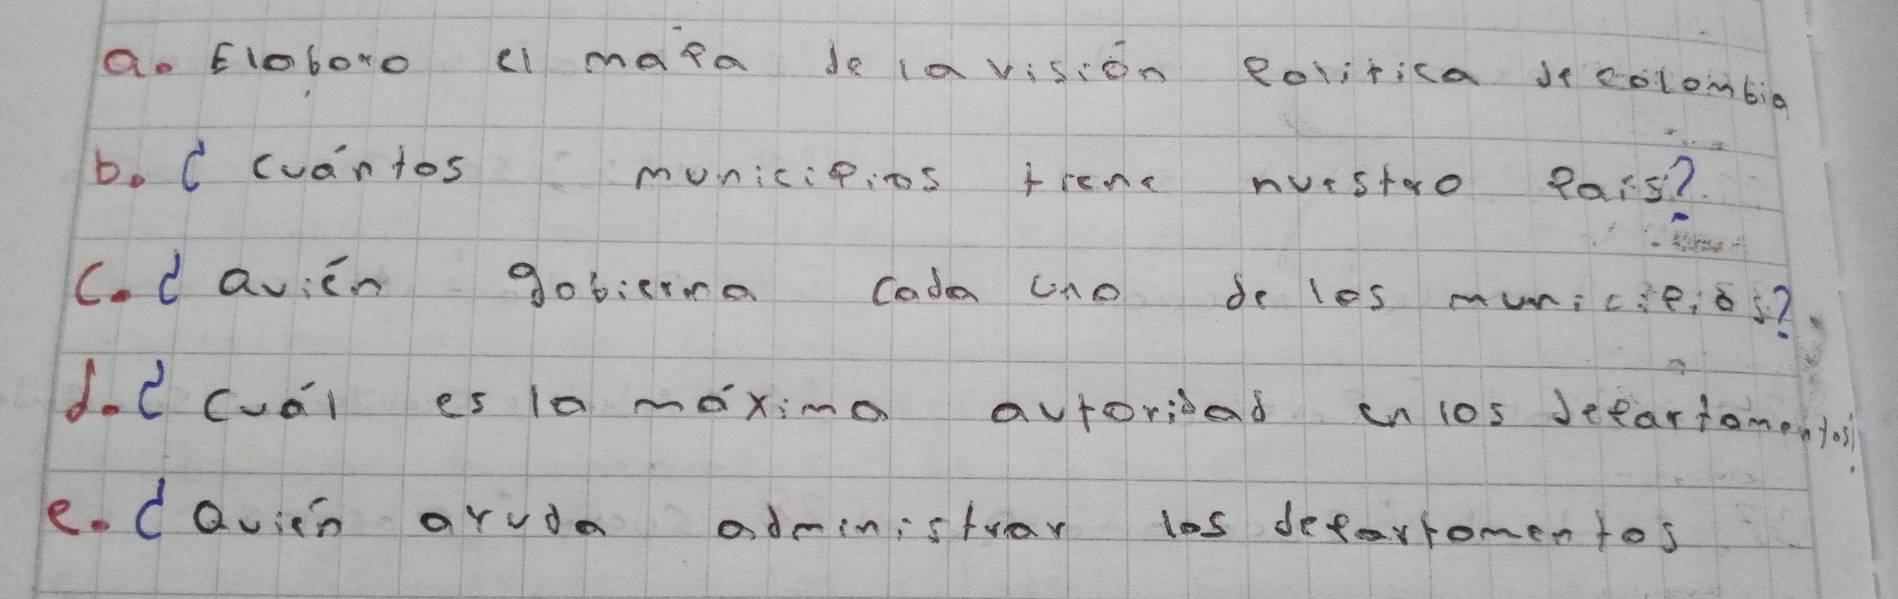 a. Elaboro el mapa de la visión política de colombia
b. ¿ cuántos municipios tiene nuestro País?
c. ¿ Quién gobierna cada uno de los municipios?
d. ¿ cuál es la máxima autoridad en los departamentos?
e. ¿ Quién ayuda administrar los departamentos